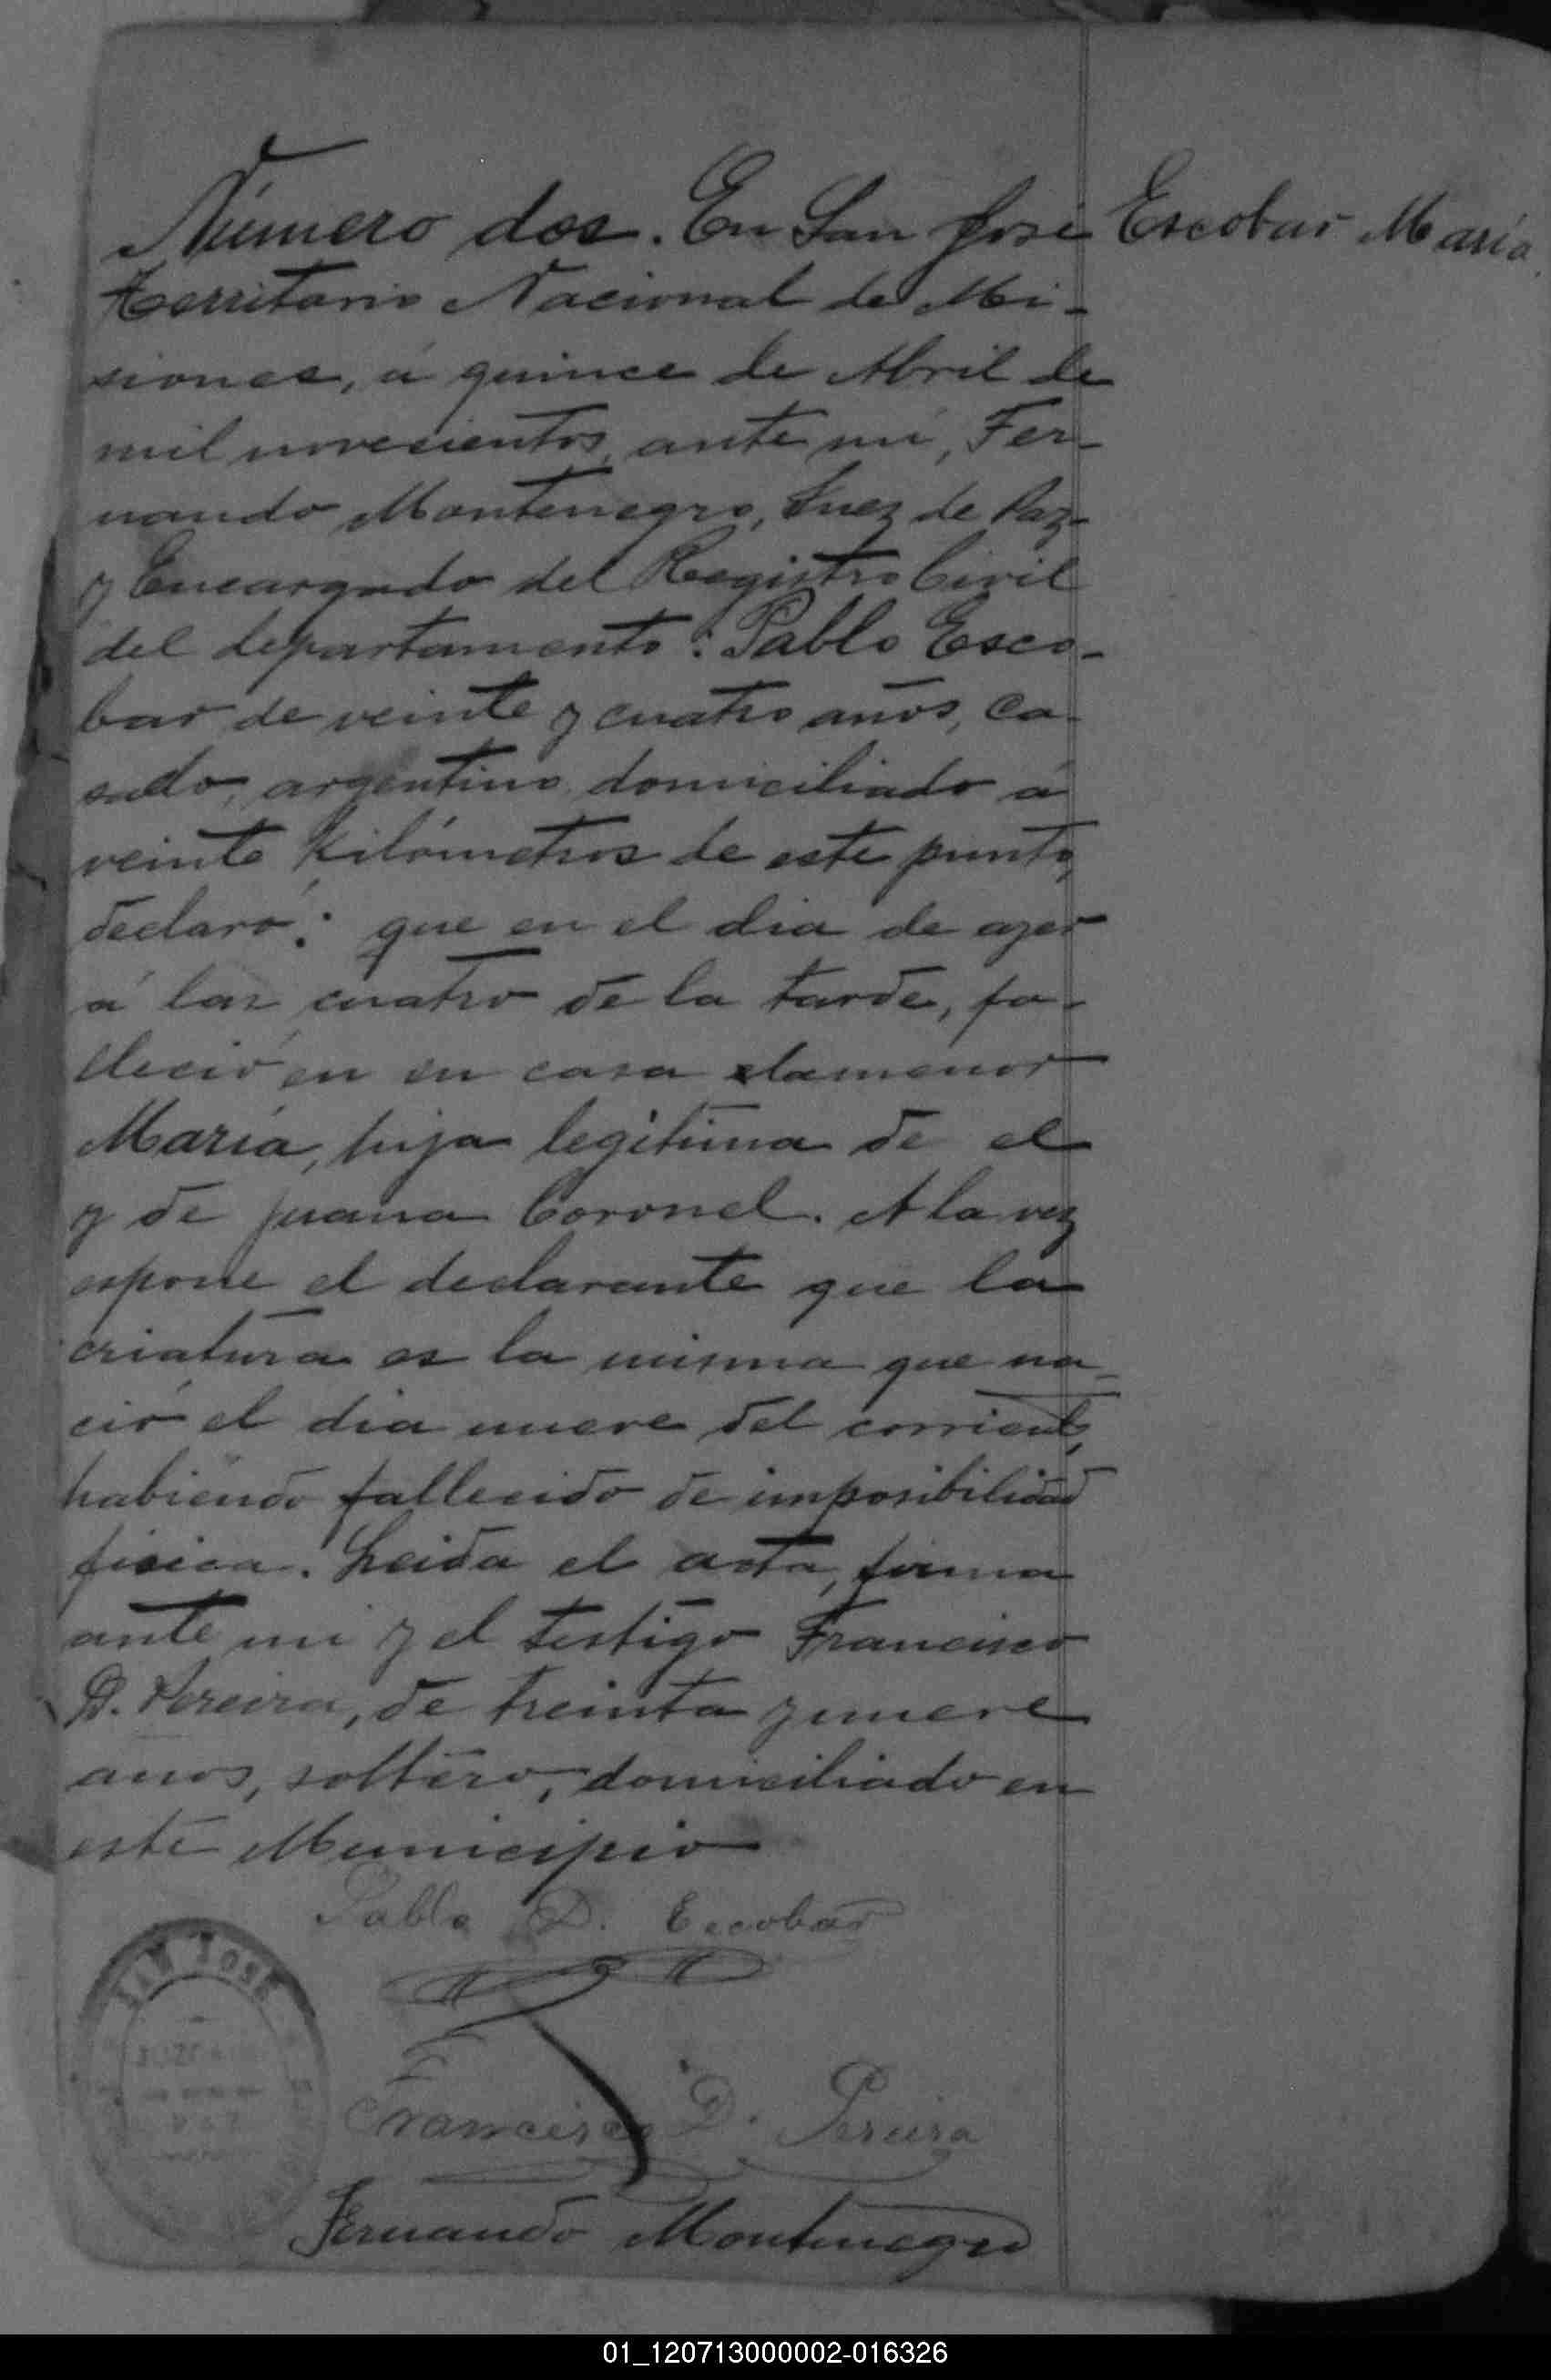 Número dos. En San José
Escobar María
territorio Nacional de Mi-
siones, á quince de Abril de
mil novecientos, ante mi, Fer-
nando Montenegro, Juez de Paz
y Encargado del Registro Civil
del departamento: Pablo Esco-
bar de veinte y cuatro años, ca-
sado, argentino, domiciliado á
veinte kilómetros de este punto,
declaró: que en el dia de ayer
á las cuatro de la tarde, fa-
lleció en su casa la menor
María, hija legítima de el
y de Juana Coronel. A la vez
espone el declarante que la
criatura es la misma que na-
ció el dia nueve del corriente,
habiendo fallecido de imposibilidad
fisica. Leida el acta, firma
ante mi y el testigo Francisco
D. Pereira, de treinta y nueve
anos, soltero, domiciliado en
este Municipio
Pablo D. Escobar
SAN JOSE
JUZGADO
PAZ
Francisco D. Pereira
Fernando Montenegro
01_120713000002-016326